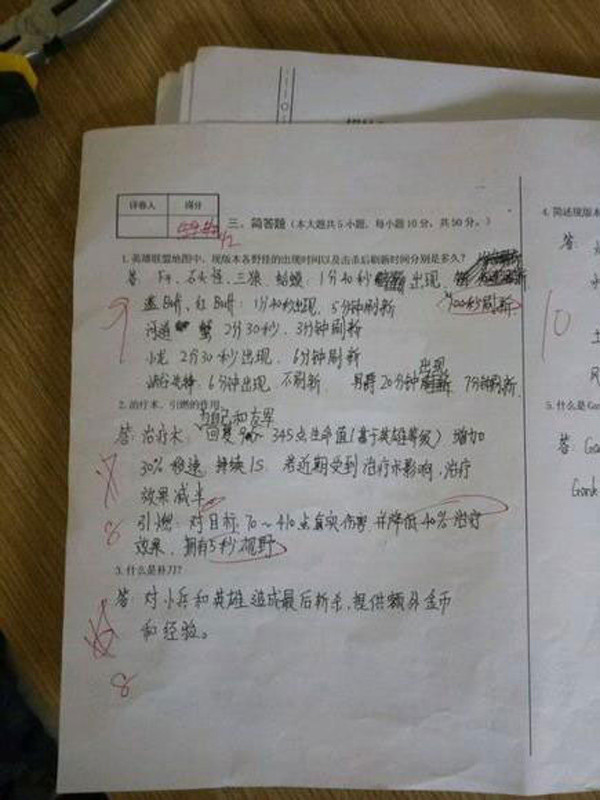 评卷人 得分
三、简答题（本大题共5小题，每小题10分，共50分。）
1. 英雄联盟地图中，现版本各野怪的出现时间以及击杀后刷新时间分别是多久？
答：F4、石头怪、三狼、蛤蟆：1分40秒 出现，
100秒刷新
蓝Buff、红Buff：1分40秒出现，5分钟刷新
河道 蟹 2分30秒，3分钟刷新
小龙 2分30秒出现，6分钟刷新
出现
峡谷先锋：6分钟出现 不刷新 男爵20分钟 7分钟刷新.
9
2. 治疗术、引燃的作用
为自己和友军
答：治疗术： 回复 345点生命值(基于英雄等级) 增加
30%移速，持续1S. 若近期受到治疗术影响，治疗
效果减半
引燃：对目标 70~410点真实伤害 并降低40%治疗
效果，拥有5秒视野
8
3. 什么是补刀？
答：对小兵和英雄造成最后斩杀，提供额外金币
和经验。
8
4. 简述现版
答：
10
风
5. 什么是Gan
答：
Gank